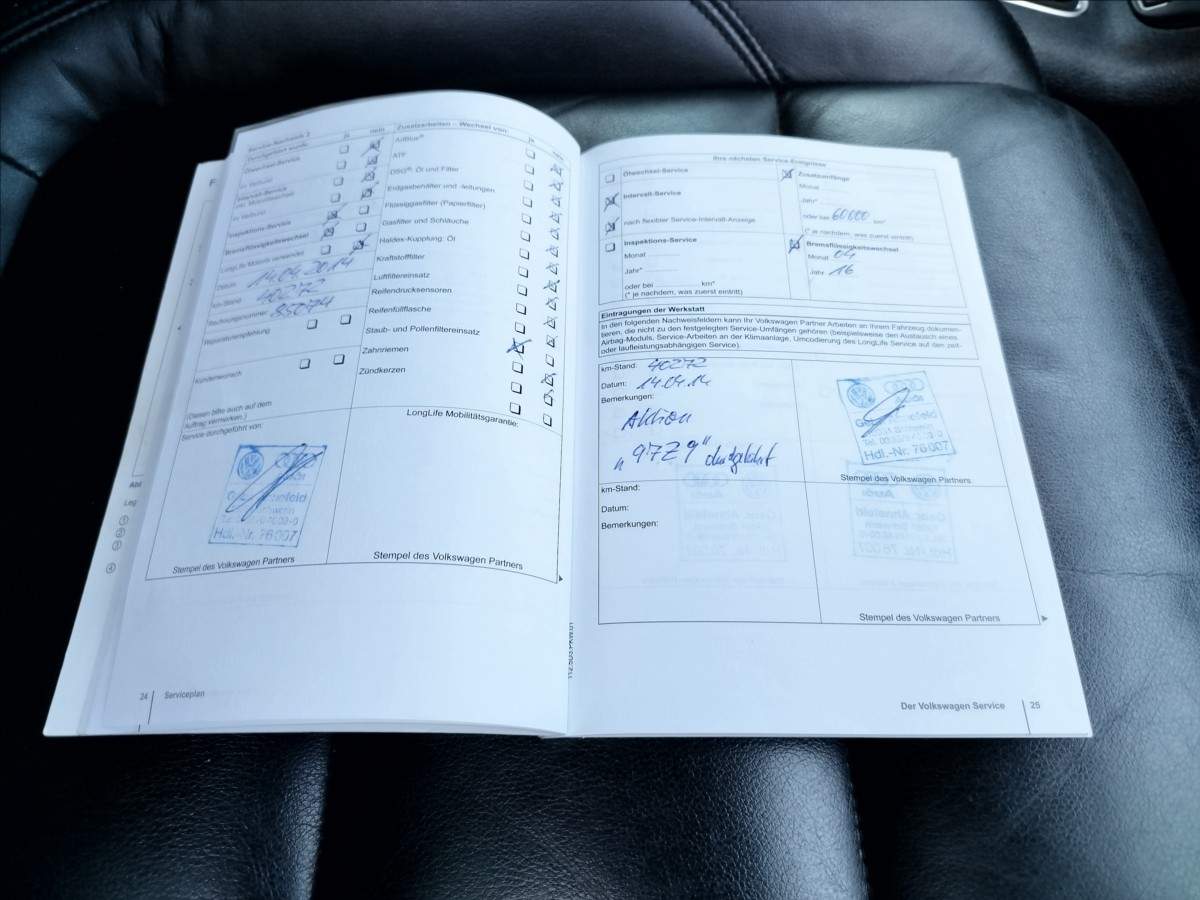 Service-Nachweis 2
ja
nein
Durchgeführt wurde:
Ölwechsel-Service
Intervall-Service
Inspektions-Service
Bremsflüssigkeitswechsel
LongLife Mobilität verwendet
Datum: 14.04.2014
km-Stand: 40272
Rechnungsnummer: 85074
Reparaturempfehlung
Kundenwunsch
(Diesen bitte auch auf dem
Auftrag vermerken.)
Service durchgeführt von:
Hdl.-Nr. 76007
Stempel des Volkswagen Partners
Zusatzarbeiten – Wechsel von:
ja
nein
AdBlue®
ATF
DSG®: Öl und Filter
Erdgasbehälter und -leitungen
Flüssiggasfilter (Papierfilter)
Gasfilter und Schläuche
Haldex-Kupplung: Öl
Kraftstofffilter
Luftfiltereinsatz
Reifendrucksensoren
Reifenfüllflasche
Staub- und Pollenfiltereinsatz
Zahnriemen
Zündkerzen
LongLife Mobilitätsgarantie:
Stempel des Volkswagen Partners
24 Serviceplan
Ihre nächsten Service-Ereignisse
Ölwechsel-Service
Intervall-Service
nach flexibler Service-Intervall-Anzeige
Inspektions-Service
Monat
Jahr*
oder bei km*
(* je nachdem, was zuerst eintritt)
Zusatzumfänge
Monat
Jahr*
oder bei 60000 km*
(* je nachdem, was zuerst eintritt)
Bremsflüssigkeitswechsel
Monat 04
Jahr 16
Eintragungen der Werkstatt
In den folgenden Nachweisfeldern kann Ihr Volkswagen Partner Arbeiten an Ihrem Fahrzeug dokumen-
tieren, die nicht zu den festgelegten Service-Umfängen gehören (beispielsweise den Austausch eines
Airbag-Moduls, Service-Arbeiten an der Klimaanlage, Umcodierung des LongLife Service auf den zeit-
oder laufleistungsabhängigen Service).
km-Stand: 40272
Datum: 14.04.14
Bemerkungen:
Aktion
„97Z9“ durchgeführt
Audi
Hdl.-Nr. 76007
Stempel des Volkswagen Partners
km-Stand:
Datum:
Bemerkungen:
Stempel des Volkswagen Partners
Der Volkswagen Service 25